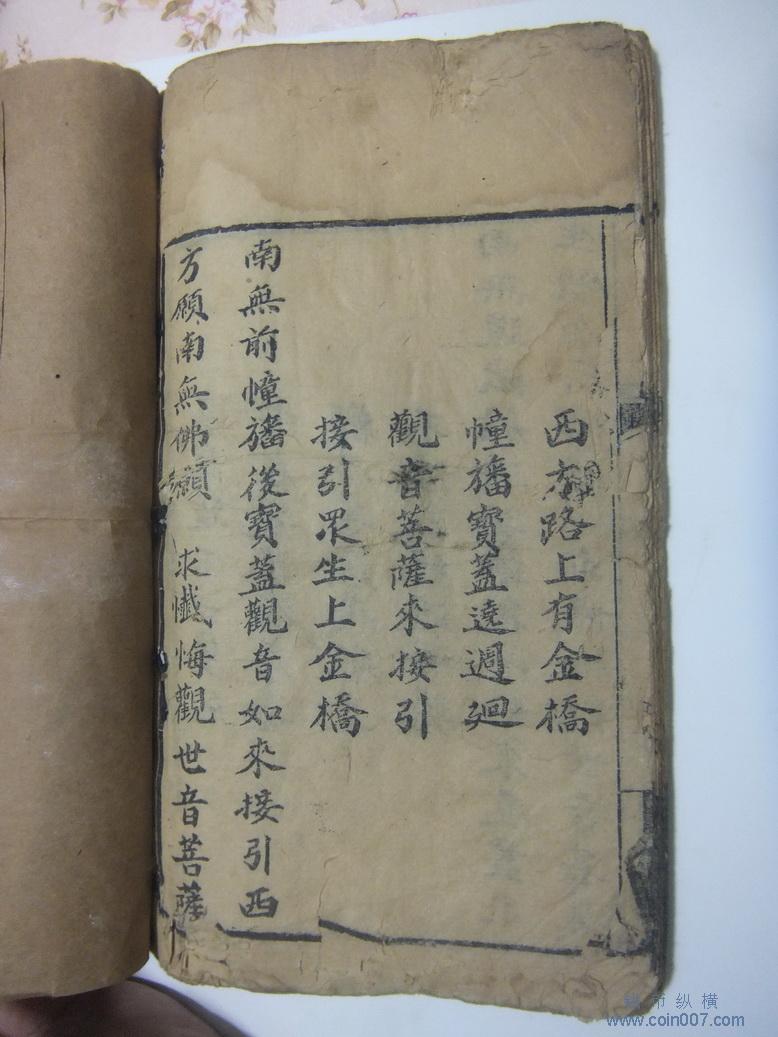 西方路上有金橋
幢旛寶蓋遶週廻
觀音菩薩來接引
接引眾生上金橋
南無前幢旛後寶蓋觀音如來接引西
方願南無佛願 求懺悔觀世音菩薩
钱币纵横
www.coin007.com